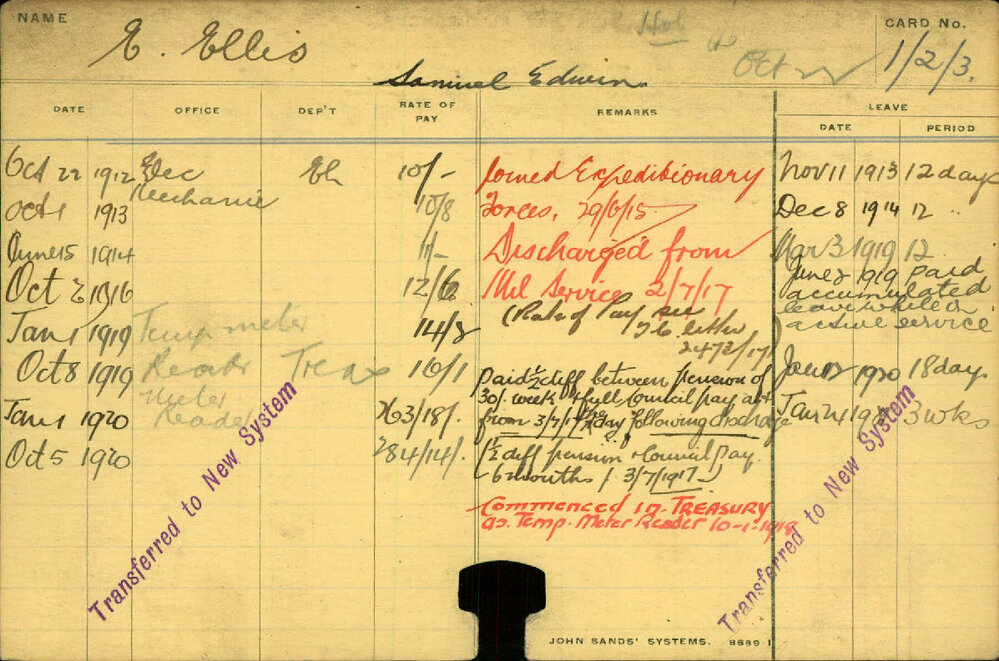 NAME
E. Ellis
CARD No.
Oct
1/2/3.
Samuel Edwin
DATE OFFICE DEP'T RATE OF PAY REMARKS LEAVE
DATE PERIOD
Oct 22 1912 Elec El 10/- Joined Expeditionary Nov 11 1913 12 days
Mechanic
Oct 1 1913 10/8 Forces, 29/6/15 Dec 8 1914 12 "
June 15 1914 11/- Discharged from Mar 3 1919 12
June 2 1919 paid
Oct 2 1916 12/6 Mil Service 2/7/17 accumulated
leave while on
(Rate of Pay see active service
Jan 1 1919 Temp meter 14/2 T.C. letter
2472/17)
Oct 8 1919 Reader Treas 16/1 1920 18 days
paid ½ diff between pension of
30/- week & full Council pay
Meter
Jan 1 1920 Reader 263/18/- from 3/7/17 day following discharge Jan 24 3 wks
Oct 5 1920 284/14/- (½ diff pension & Council Pay.
6 months / 3/7/1917)
Commenced in TREASURY
as Temp. Meter Reader 10-1-1918
Transferred to New System
Transferred to New System
JOHN SANDS' SYSTEMS. 8689-1